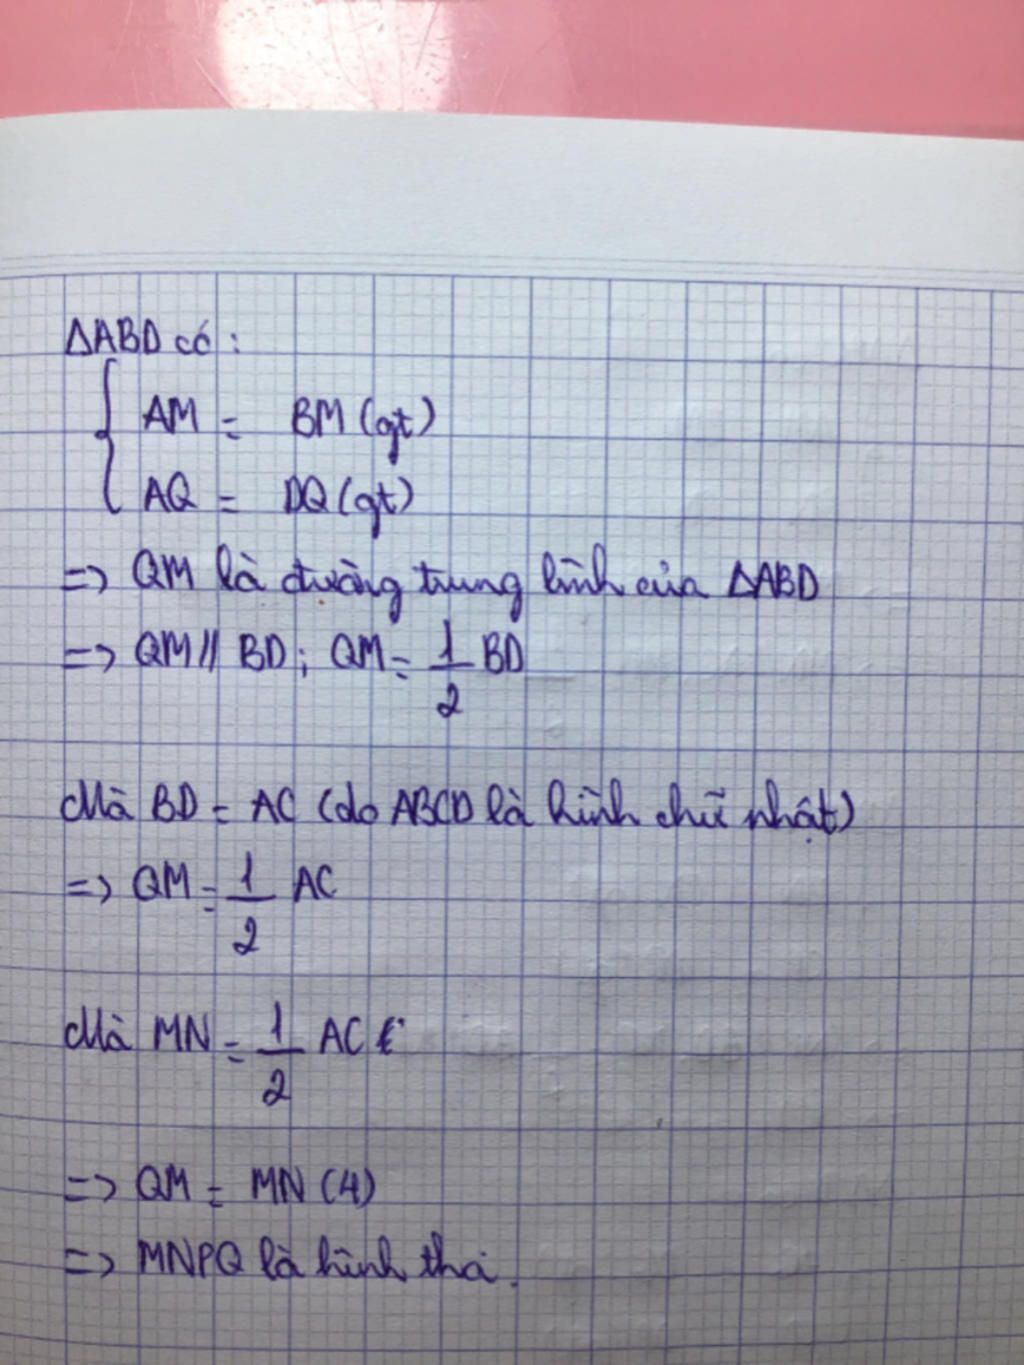 ΔABD có:
{ AM = BM (gt)
AQ = DQ (gt)
=> QM là đường trung bình của ΔABD
=> QM // BD; QM = 1/2 BD
Mà BD = AC (do ABCD là hình chữ nhật)
=> QM = 1/2 AC
Mà MN = 1/2 AC
=> QM = MN (4)
=> MNPQ là hình thoi.